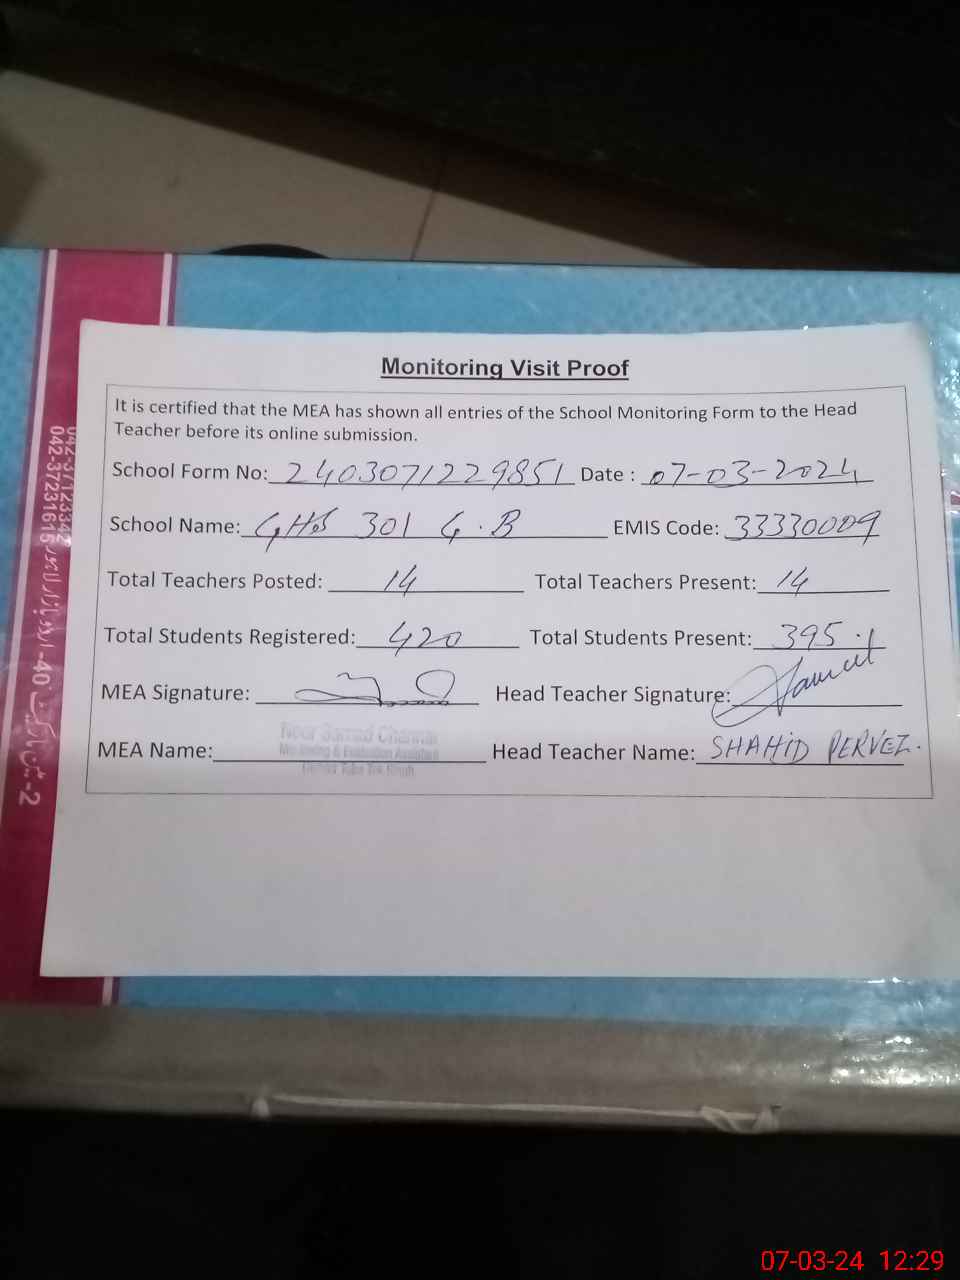 Monitoring Visit Proof
It is certified that the MEA has shown all entries of the School Monitoring Form to the Head
Teacher before its online submission.
School Form No: 2403071229851 Date : 07-03-2024
School Name: GHS 301 G.B EMIS Code: 33330009
Total Teachers Posted: 14 Total Teachers Present: 14
Total Students Registered: 420 Total Students Present: 395
MEA Signature: Head Teacher Signature:
MEA Name: Head Teacher Name: SHAHID PERVEZ.
Monitoring & Evaluation Assistant
District Toba Tek Singh
042-37231616
07-03-24 12:29